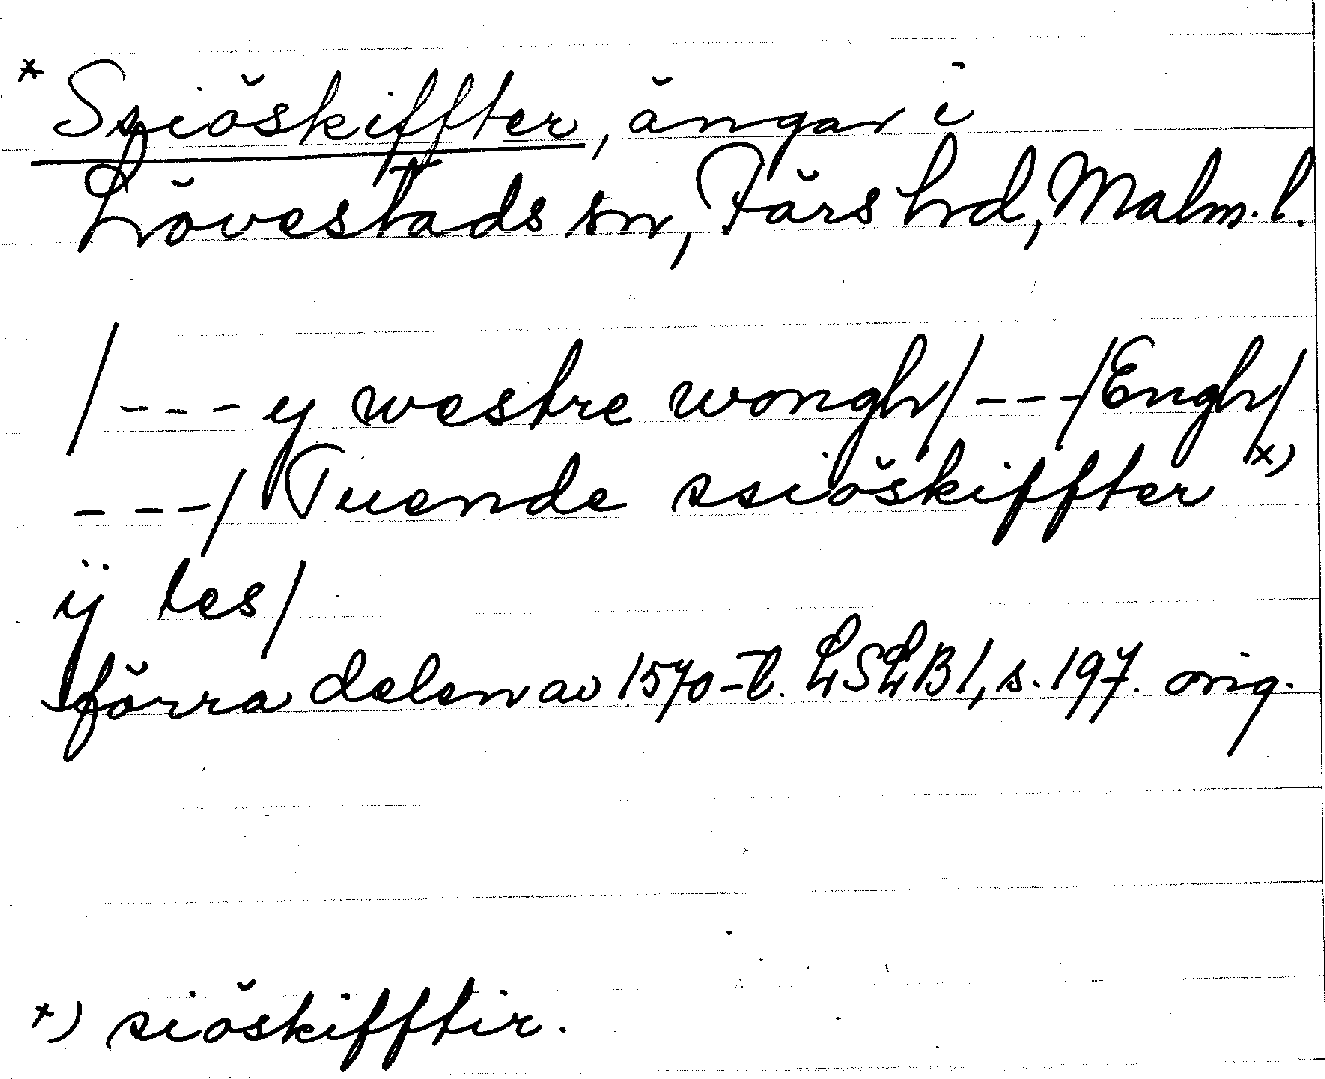 * Ssiöskiffter, ängar i
Lövestads sn, Färs hd, Malm. l.
/---y westre wongh/---/Engh/
---/ Tuende ssiöskiffter x)
ÿ les/
förra delen av 1570-t. LSLB 1, s. 197. orig.
x) siöskifftir.